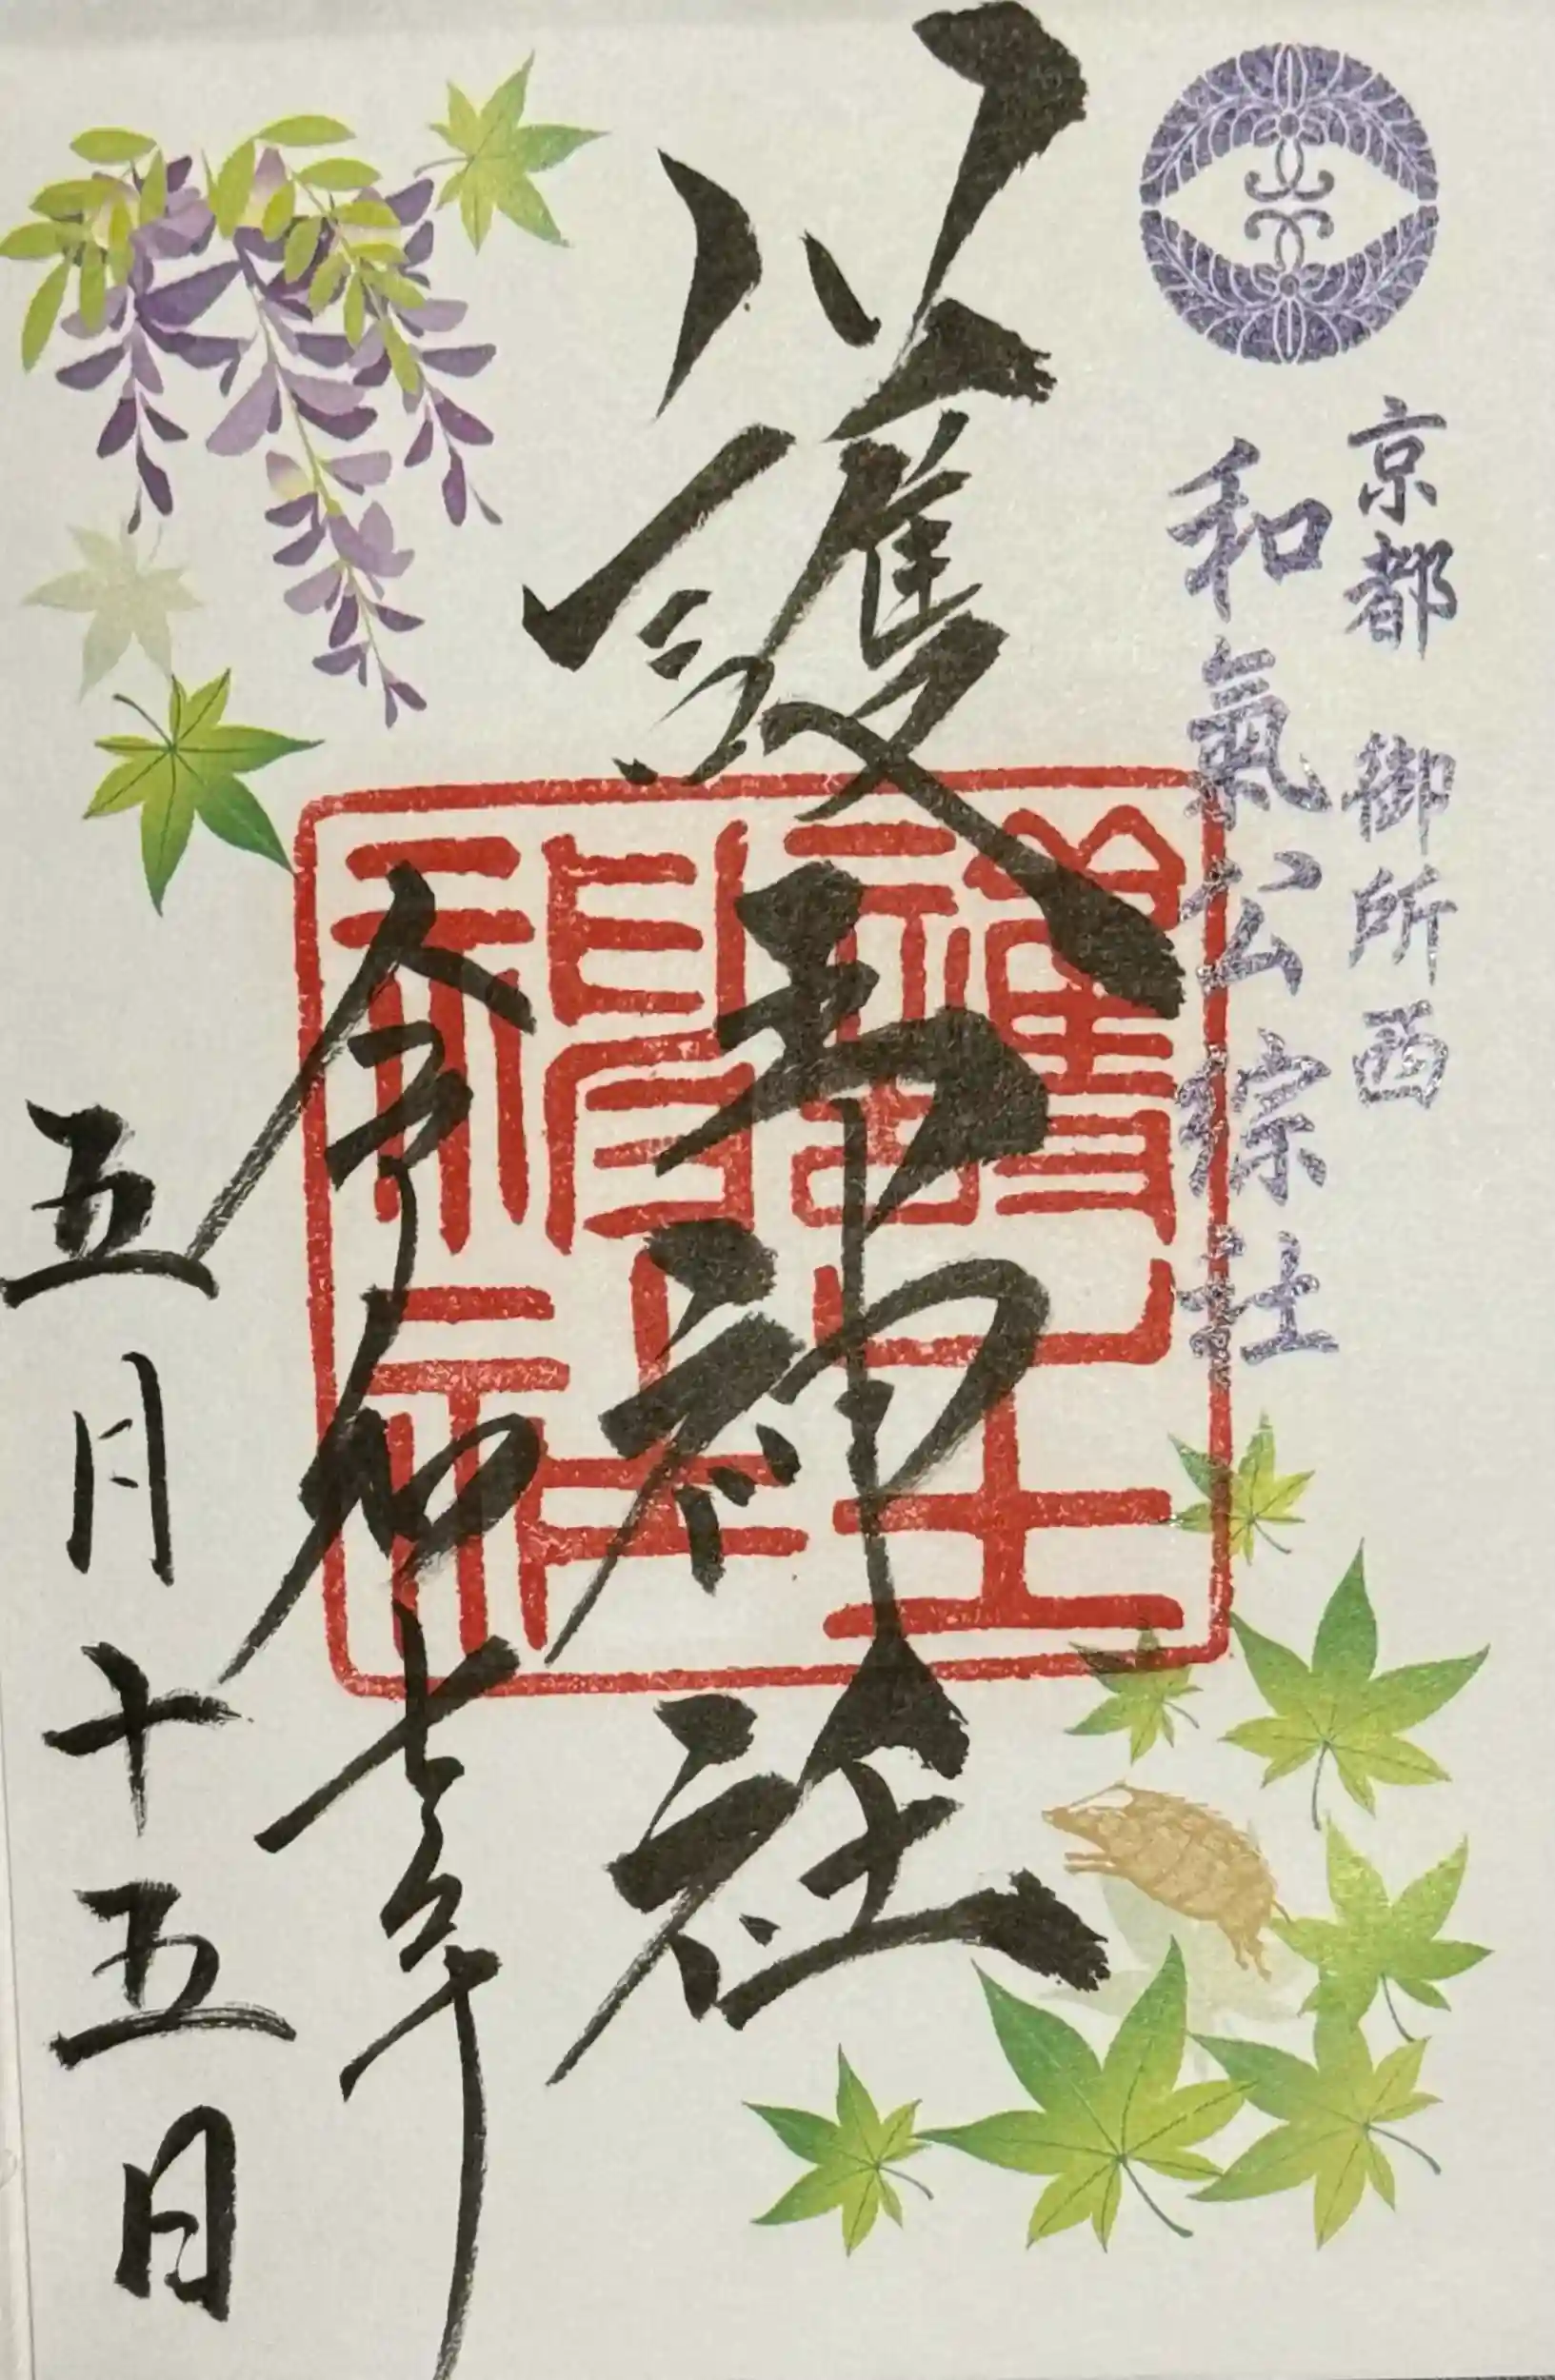 京都 御所西
和氣公綜社
護王神社
令和七年
五月十五日
護王
神社